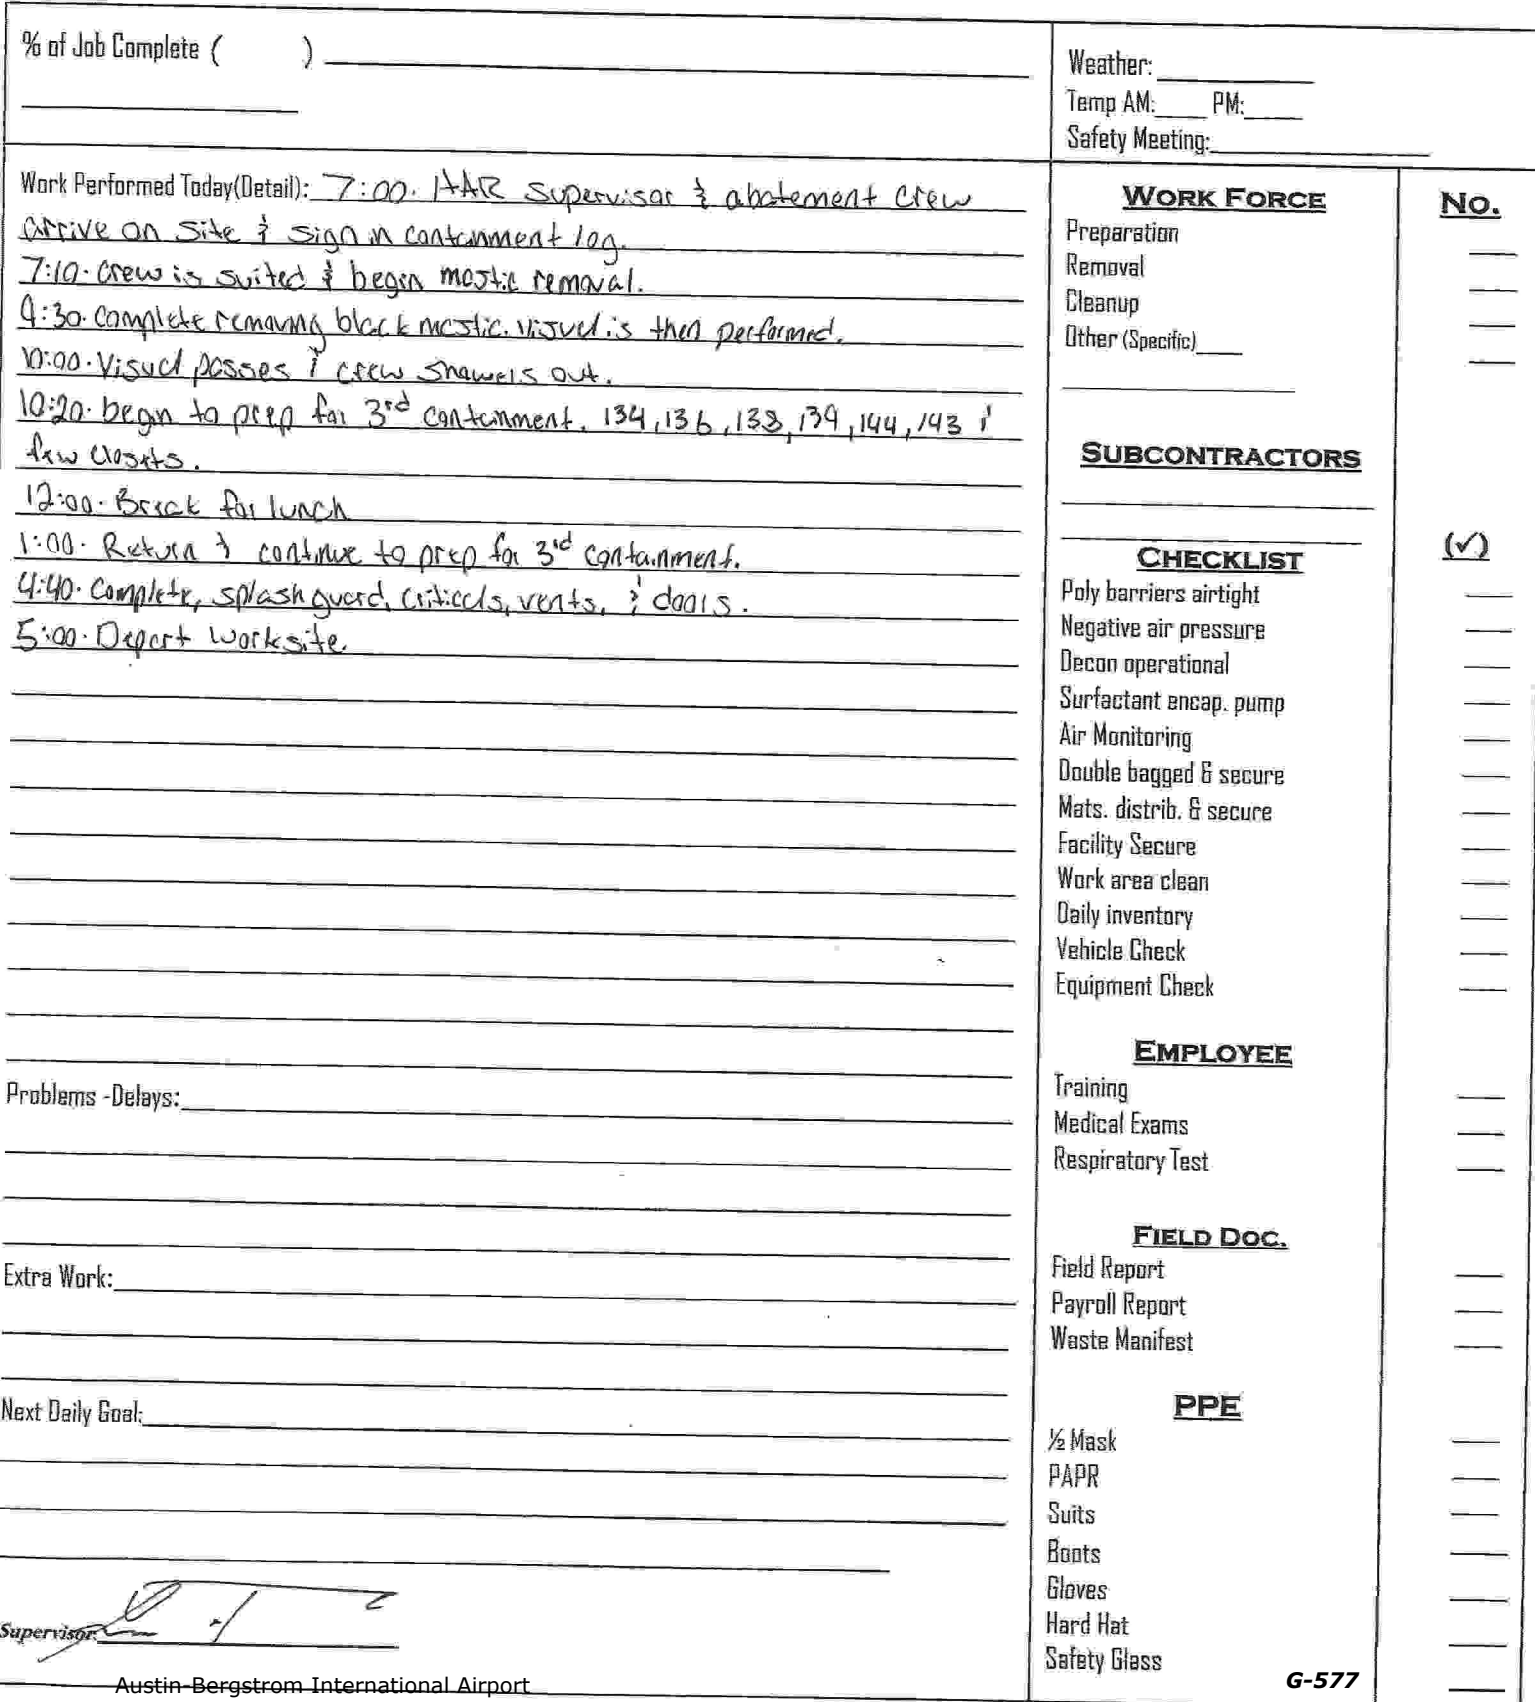 % of Job Complete (          )
Weather:
Temp AM: PM:
Safety Meeting:
Work Performed Today(Detail): 7:00. HAR supervisor & abatement crew
arrive on site & sign in containment log.
7:10. crew is suited & begin mastic removal.
9:30. complete removing black mastic. visual is then performed.
10:00. Visual passes & crew showers out.
10:20. begin to prep for 3rd containment. 134, 136, 138, 139, 144, 143 &
few closets.
12:00. Break for lunch
1:00. Return & continue to prep for 3rd containment.
4:40. Complete, splash guard, criticals, vents, & doors.
5:00. Depart worksite.
Problems -Delays:
Extra Work:
Next Daily Goal:
Supervisor:
WORK FORCE No.
Preparation
Removal
Cleanup
Other (Specific)
SUBCONTRACTORS
CHECKLIST (✓)
Poly barriers airtight
Negative air pressure
Decon operational
Surfactant encap. pump
Air Monitoring
Double bagged & secure
Mats. distrib. & secure
Facility Secure
Work area clean
Daily inventory
Vehicle Check
Equipment Check
EMPLOYEE
Training
Medical Exams
Respiratory Test
FIELD DOC.
Field Report
Payroll Report
Waste Manifest
PPE
½ Mask
PAPR
Suits
Boots
Gloves
Hard Hat
Safety Glass
Austin-Bergstrom International Airport
G-577